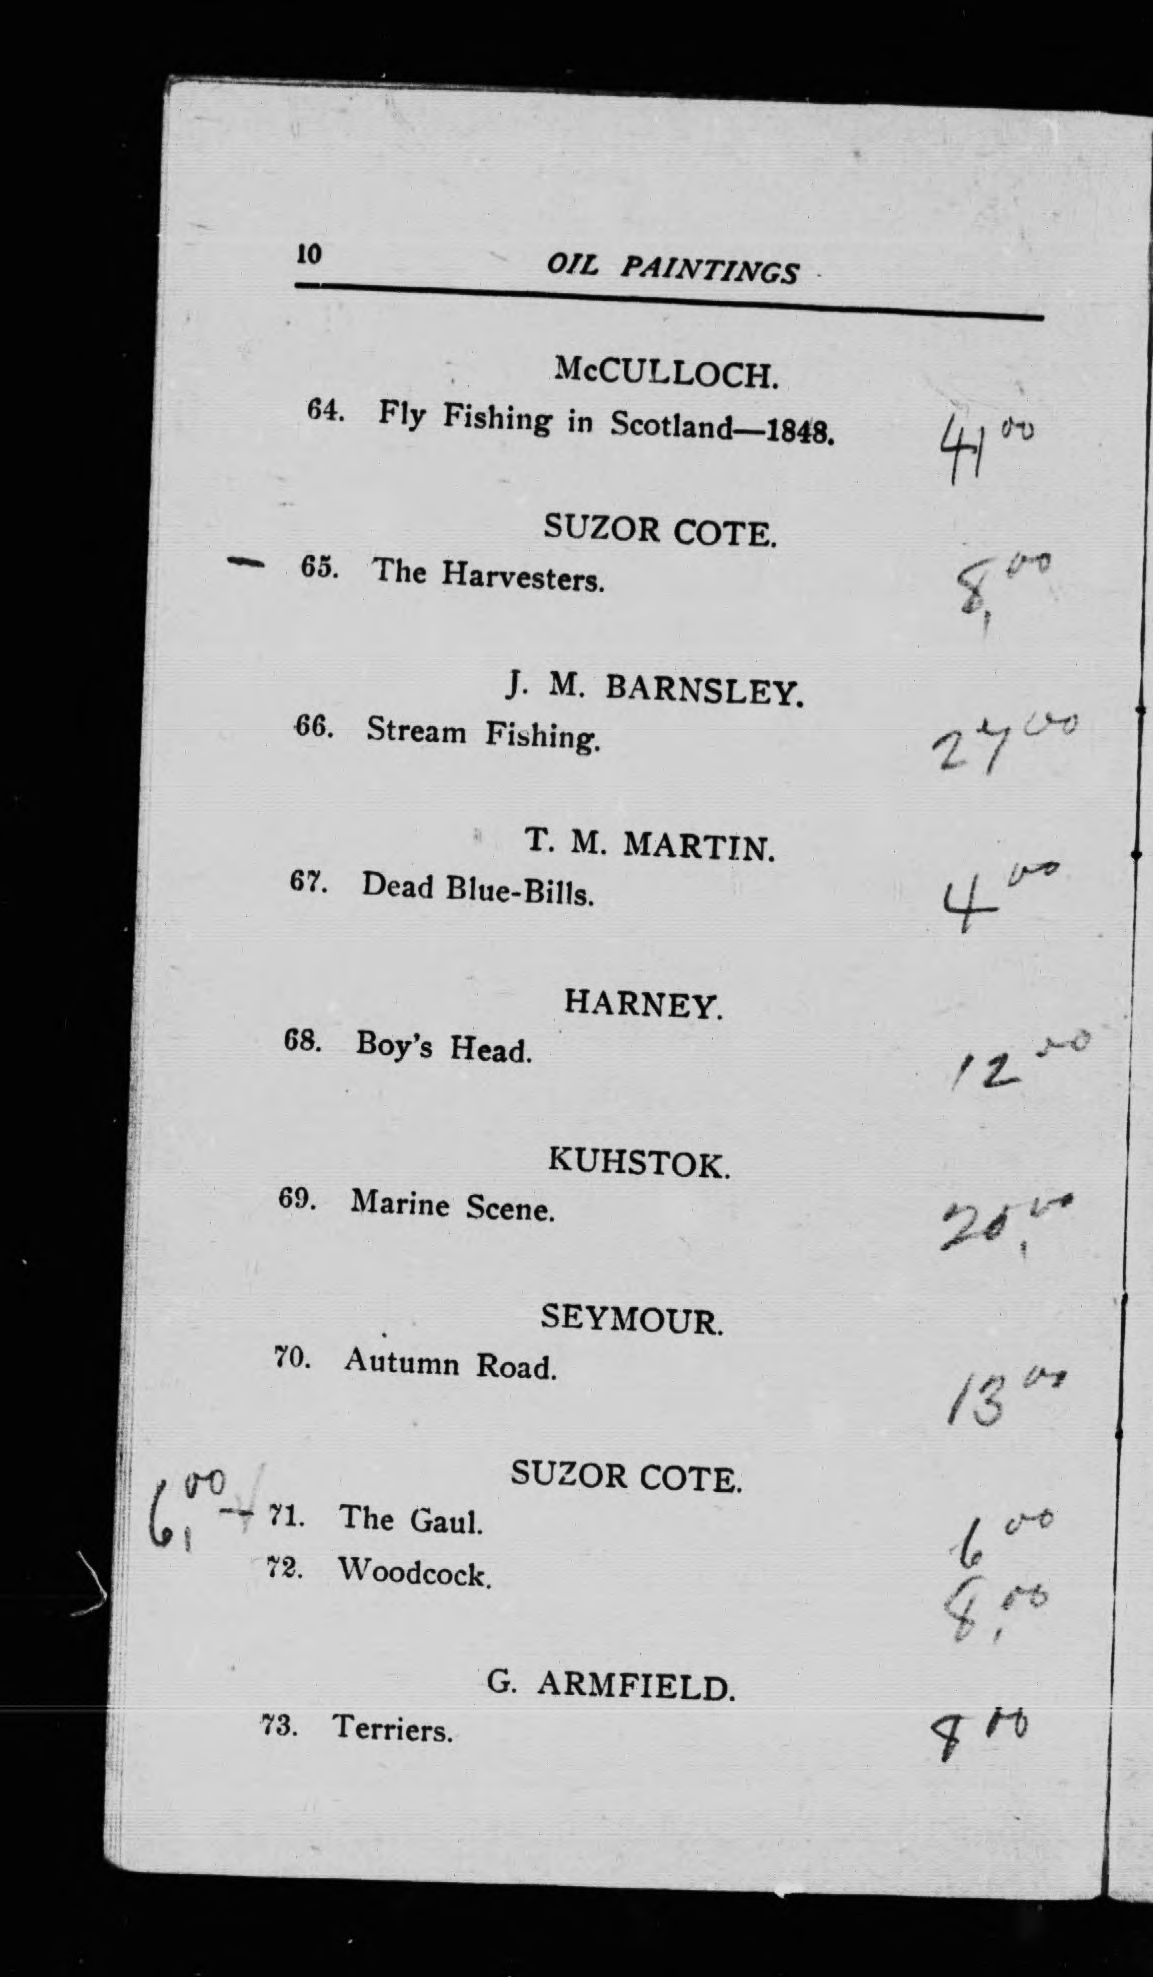 10 OIL PAINTINGS
McCULLOCH.
64. Fly Fishing in Scotland—1848. 41 00
SUZOR COTE.
— 65. The Harvesters. 8, 00
J. M. BARNSLEY.
66. Stream Fishing. 27 00
T. M. MARTIN.
67. Dead Blue-Bills. 4 00
HARNEY.
68. Boy's Head. 12 00
KUHSTOK.
69. Marine Scene. 20, 00
SEYMOUR.
70. Autumn Road. 13 00
SUZOR COTE.
6, 00 — 71. The Gaul. 6 00
72. Woodcock. 8, 00
G. ARMFIELD.
73. Terriers. 8 00